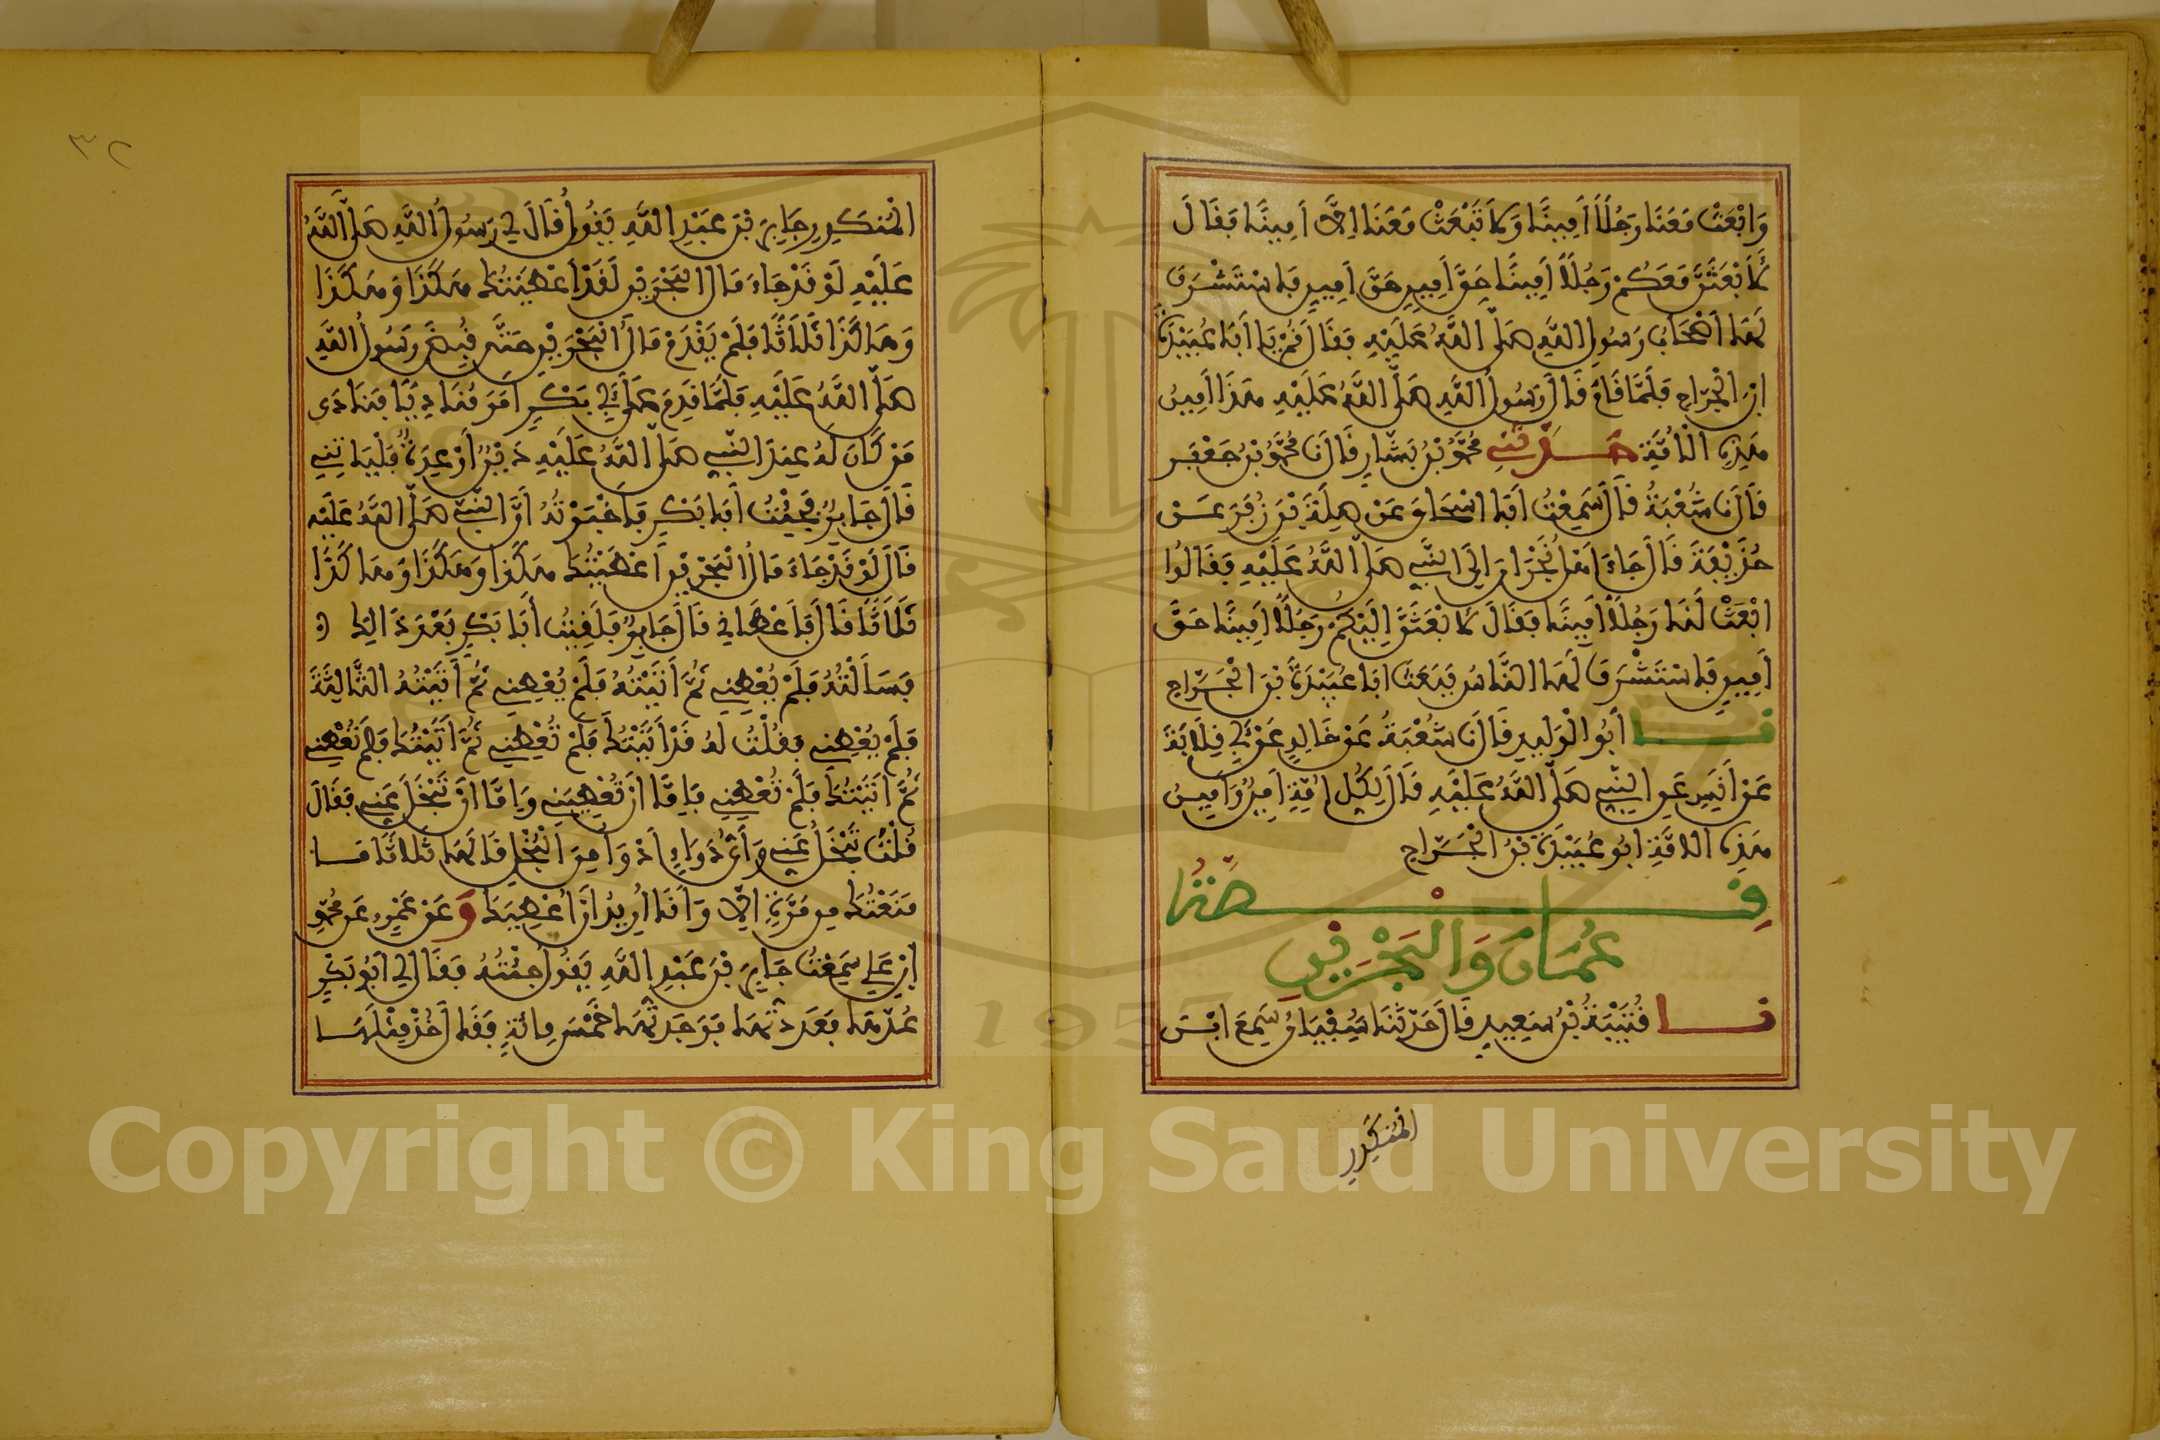 وَابْعَثْ مَعَنَا رَجُلاً أَمِينًا وَلَا تَبْعَثْ مَعَنَا إِلَّا أَمِينًا فَقَالَ
لَأَبْعَثَنَّ مَعَكُمْ رَجُلاً أَمِينًا حَقَّ أَمِينٍ حَقَّ أَمِينٍ فَاسْتَشْرَفَ
لَهَا أَصْحَابُ رَسُولِ اللَّهِ صَلَّى اللَّهُ عَلَيْهِ فَقَالَ قُمْ يَا أَبَا عُبَيْدَةَ
ابْنَ الْجَرَّاحِ فَلَمَّا قَامَ قَالَ رَسُولُ اللَّهِ صَلَّى اللَّهُ عَلَيْهِ هَذَا أَمِينُ
هَذِهِ الْأُمَّةِ حَدَّثَنِي مُحَمَّدُ بْنُ بَشَّارٍ قَالَ نَا مُحَمَّدُ بْنُ جَعْفَرٍ
قَالَ نَا شُعْبَةُ قَالَ سَمِعْتُ أَبَا إِسْحَاقَ عَنْ صِلَةَ بْنِ زُفَرَ عَنْ
حُذَيْفَةَ قَالَ جَاءَ أَهْلُ نَجْرَانَ إِلَى النَّبِيِّ صَلَّى اللَّهُ عَلَيْهِ فَقَالُوا
ابْعَثْ لَنَا رَجُلاً أَمِينًا فَقَالَ لَأَبْعَثَنَّ إِلَيْكُمْ رَجُلاً أَمِينًا حَقَّ
أَمِينٍ فَاسْتَشْرَفَ لَهَا النَّاسُ فَبَعَثَ أَبَا عُبَيْدَةَ بْنَ الْجَرَّاحِ
نَا أَبُو الْوَلِيدِ قَالَ نَا شُعْبَةُ عَنْ خَالِدٍ عَنْ أَبِي قِلَابَةَ
عَنْ أَنَسٍ عَنِ النَّبِيِّ صَلَّى اللَّهُ عَلَيْهِ قَالَ لِكُلِّ أُمَّةٍ أَمِينٌ وَأَمِينُ
هَذِهِ الْأُمَّةِ أَبُو عُبَيْدَةَ بْنُ الْجَرَّاحِ
قِصَّةُ
عُمَانَ وَالْبَحْرَيْنِ
نَا قُتَيْبَةُ بْنُ سَعِيدٍ قَالَ حَدَّثَنَا سُفْيَانُ سَمِعَ ابْنَ
الْمُنْكَدِرِ
٣٢
الْمُنْكَدِرِ جَابِرَ بْنَ عَبْدِ اللَّهِ يَقُولُ قَالَ لِي رَسُولُ اللَّهِ صَلَّى اللَّهُ
عَلَيْهِ لَوْ قَدْ جَاءَ مَالُ الْبَحْرَيْنِ لَقَدْ أَعْطَيْتُكَ هَكَذَا وَهَكَذَا
وَهَاكَذَا ثَلَاثًا فَلَمْ يَقْدَمْ مَالُ الْبَحْرَيْنِ حَتَّى قُبِضَ رَسُولُ اللَّهِ
صَلَّى اللَّهُ عَلَيْهِ فَلَمَّا قَدِمَ عَلَى أَبِي بَكْرٍ أَمَرَ مُنَادِيًا فَنَادَى
مَنْ كَانَ لَهُ عِنْدَ النَّبِيِّ صَلَّى اللَّهُ عَلَيْهِ دَيْنٌ أَوْ عِدَةٌ فَلْيَاتِنِي
قَالَ جَابِرٌ فَجِئْتُ أَبَا بَكْرٍ فَأَخْبَرْتُهُ أَنَّ النَّبِيَّ صَلَّى اللَّهُ عَلَيْهِ
قَالَ لَوْ قَدْ جَاءَ مَالُ الْبَحْرَيْنِ أَعْطَيْتُكَ هَكَذَا وَهَكَذَا وَهَاكَذَا
ثَلَاثًا قَالَ فَأَعْطَانِي قَالَ جَابِرٌ فَلَقِيتُ أَبَا بَكْرٍ بَعْدَ ذَالِكَ
فَسَأَلْتُهُ فَلَمْ يُعْطِنِي ثُمَّ أَتَيْتُهُ فَلَمْ يُعْطِنِي ثُمَّ أَتَيْتُهُ الثَّالِثَةَ
فَلَمْ يُعْطِنِي فَقُلْتُ لَهُ قَدْ أَتَيْتُكَ فَلَمْ تُعْطِنِي ثُمَّ أَتَيْتُكَ فَلَمْ تُعْطِنِي
ثُمَّ أَتَيْتُكَ فَلَمْ تُعْطِنِي فَإِمَّا أَنْ تُعْطِيَنِي وَإِمَّا أَنْ تَبْخَلَ عَنِّي فَقَالَ
قُلْتَ تَبْخَلُ عَنِّي وَأَيُّ دَاءٍ أَدْوَأُ مِنَ الْبُخْلِ قَالَهَا ثَلَاثًا مَا
مَنَعْتُكَ مِنْ مَرَّةٍ إِلَّا وَأَنَا أُرِيدُ أَنْ أُعْطِيَكَ وَعَنْ عَمْرٍو عَنْ مُحَمَّدِ
ابْنِ عَلِي سَمِعْتُ جَابِرَ بْنَ عَبْدِ اللَّهِ يَقُولُ جِئْتُهُ فَقَالَ لِي أَبُو بَكْرٍ
عُدَّهَا فَعَدَدْتُهَا فَوَجَدتُّهَا خَمْسَ مِائَةٍ فَقَالَ خُذْ مِثْلَهَا
Copyright © King Saud University
1957